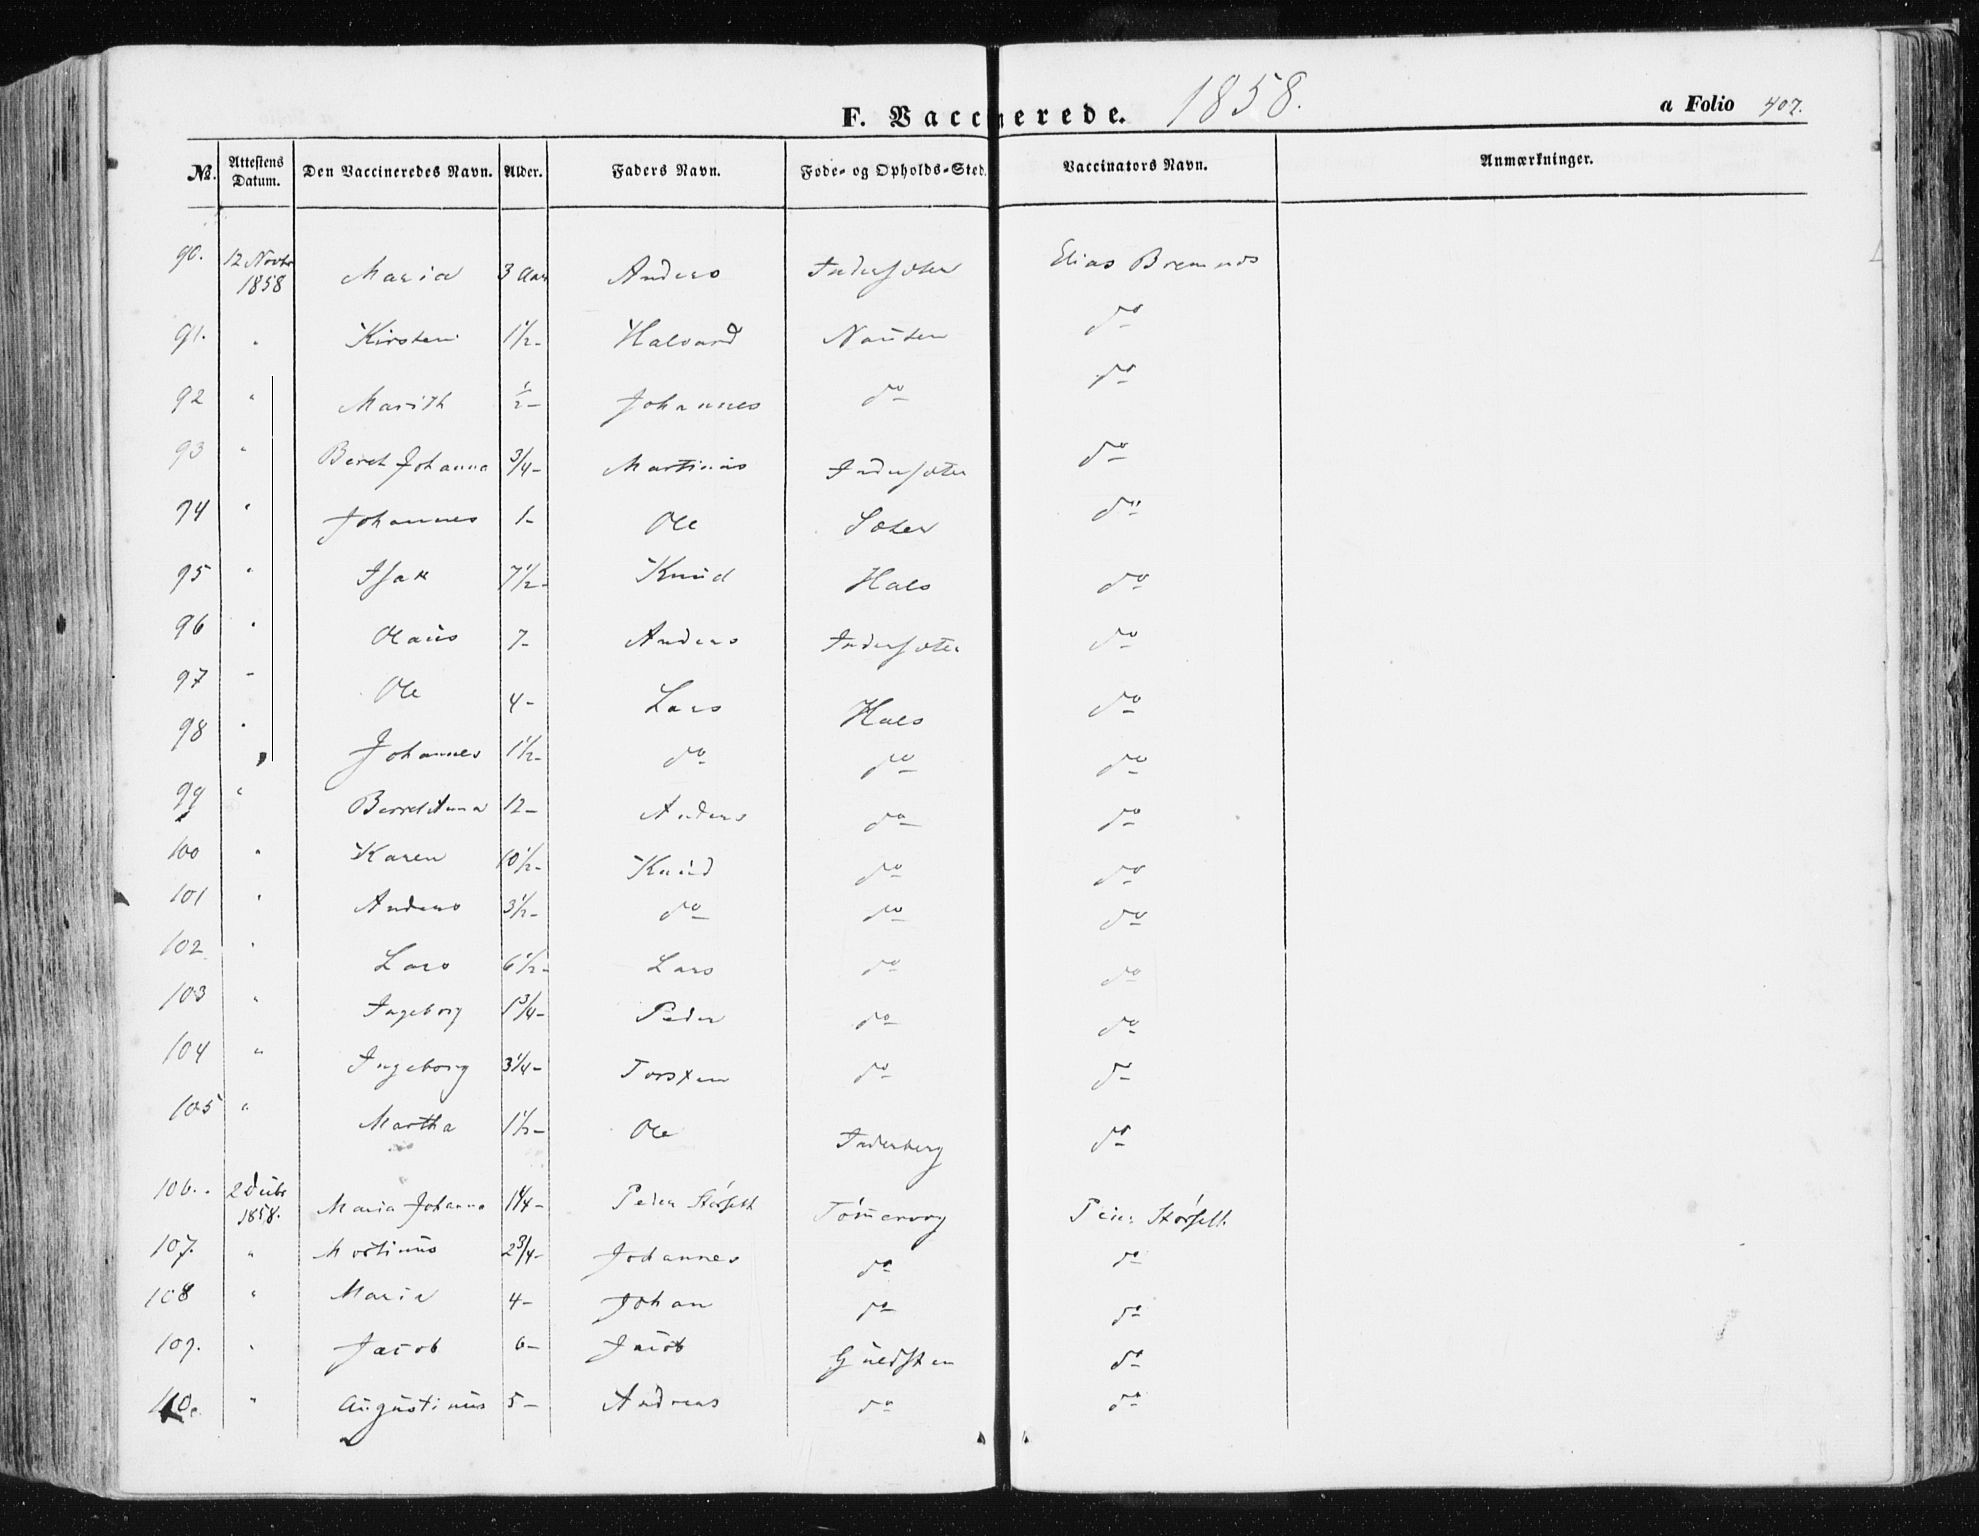 F. Vaccinerede. 1858. a Folio 407.
No. Attestens Datum. Den Vaccineredes Navn. Alder. Faders Navn. Føde- og Opholds-Sted. Vaccinators Navn. Anmærkninger.
90. 12 Novbr 1858 Maria 3 Aar Anders Indersæter Elias Bremnes
91. " Kirsten 1½- Halvard Nausten do
92 " Marith ½- Johannes do do
93 " Beret Johanna ¾- Martinus Indersæter do
94 " Johannes 1- Ole Sæter do
95 " Isak 7½- Knud Hals do
96 " Olaus 7- Anders Indersæter do
97 " Ole 4- Lars Hals do
98 " Johannes 1½- do do do
99 " Berret Anna 12- Anders do do
100 " Karen 10½- Knud do do
101 " Anders 3½- do do do
102 " Lars 6½- Lars do do
103 " Ingeborg 1¾- Peder do do
104 " Ingeborg 3¼- Torsten do do
105 " Martha 1½- Ole Inderberg do
106. 2 Decbr 1858. Maria Johanna 1¼- Peder Størseth Peder Størseth
107. " Mortinus 2¾- Johannes do do
108 " Maria 4- Johan do do
109. " Jacob 6- Jacob Guldsten do
110. " Augustinus 5- Andreas do do